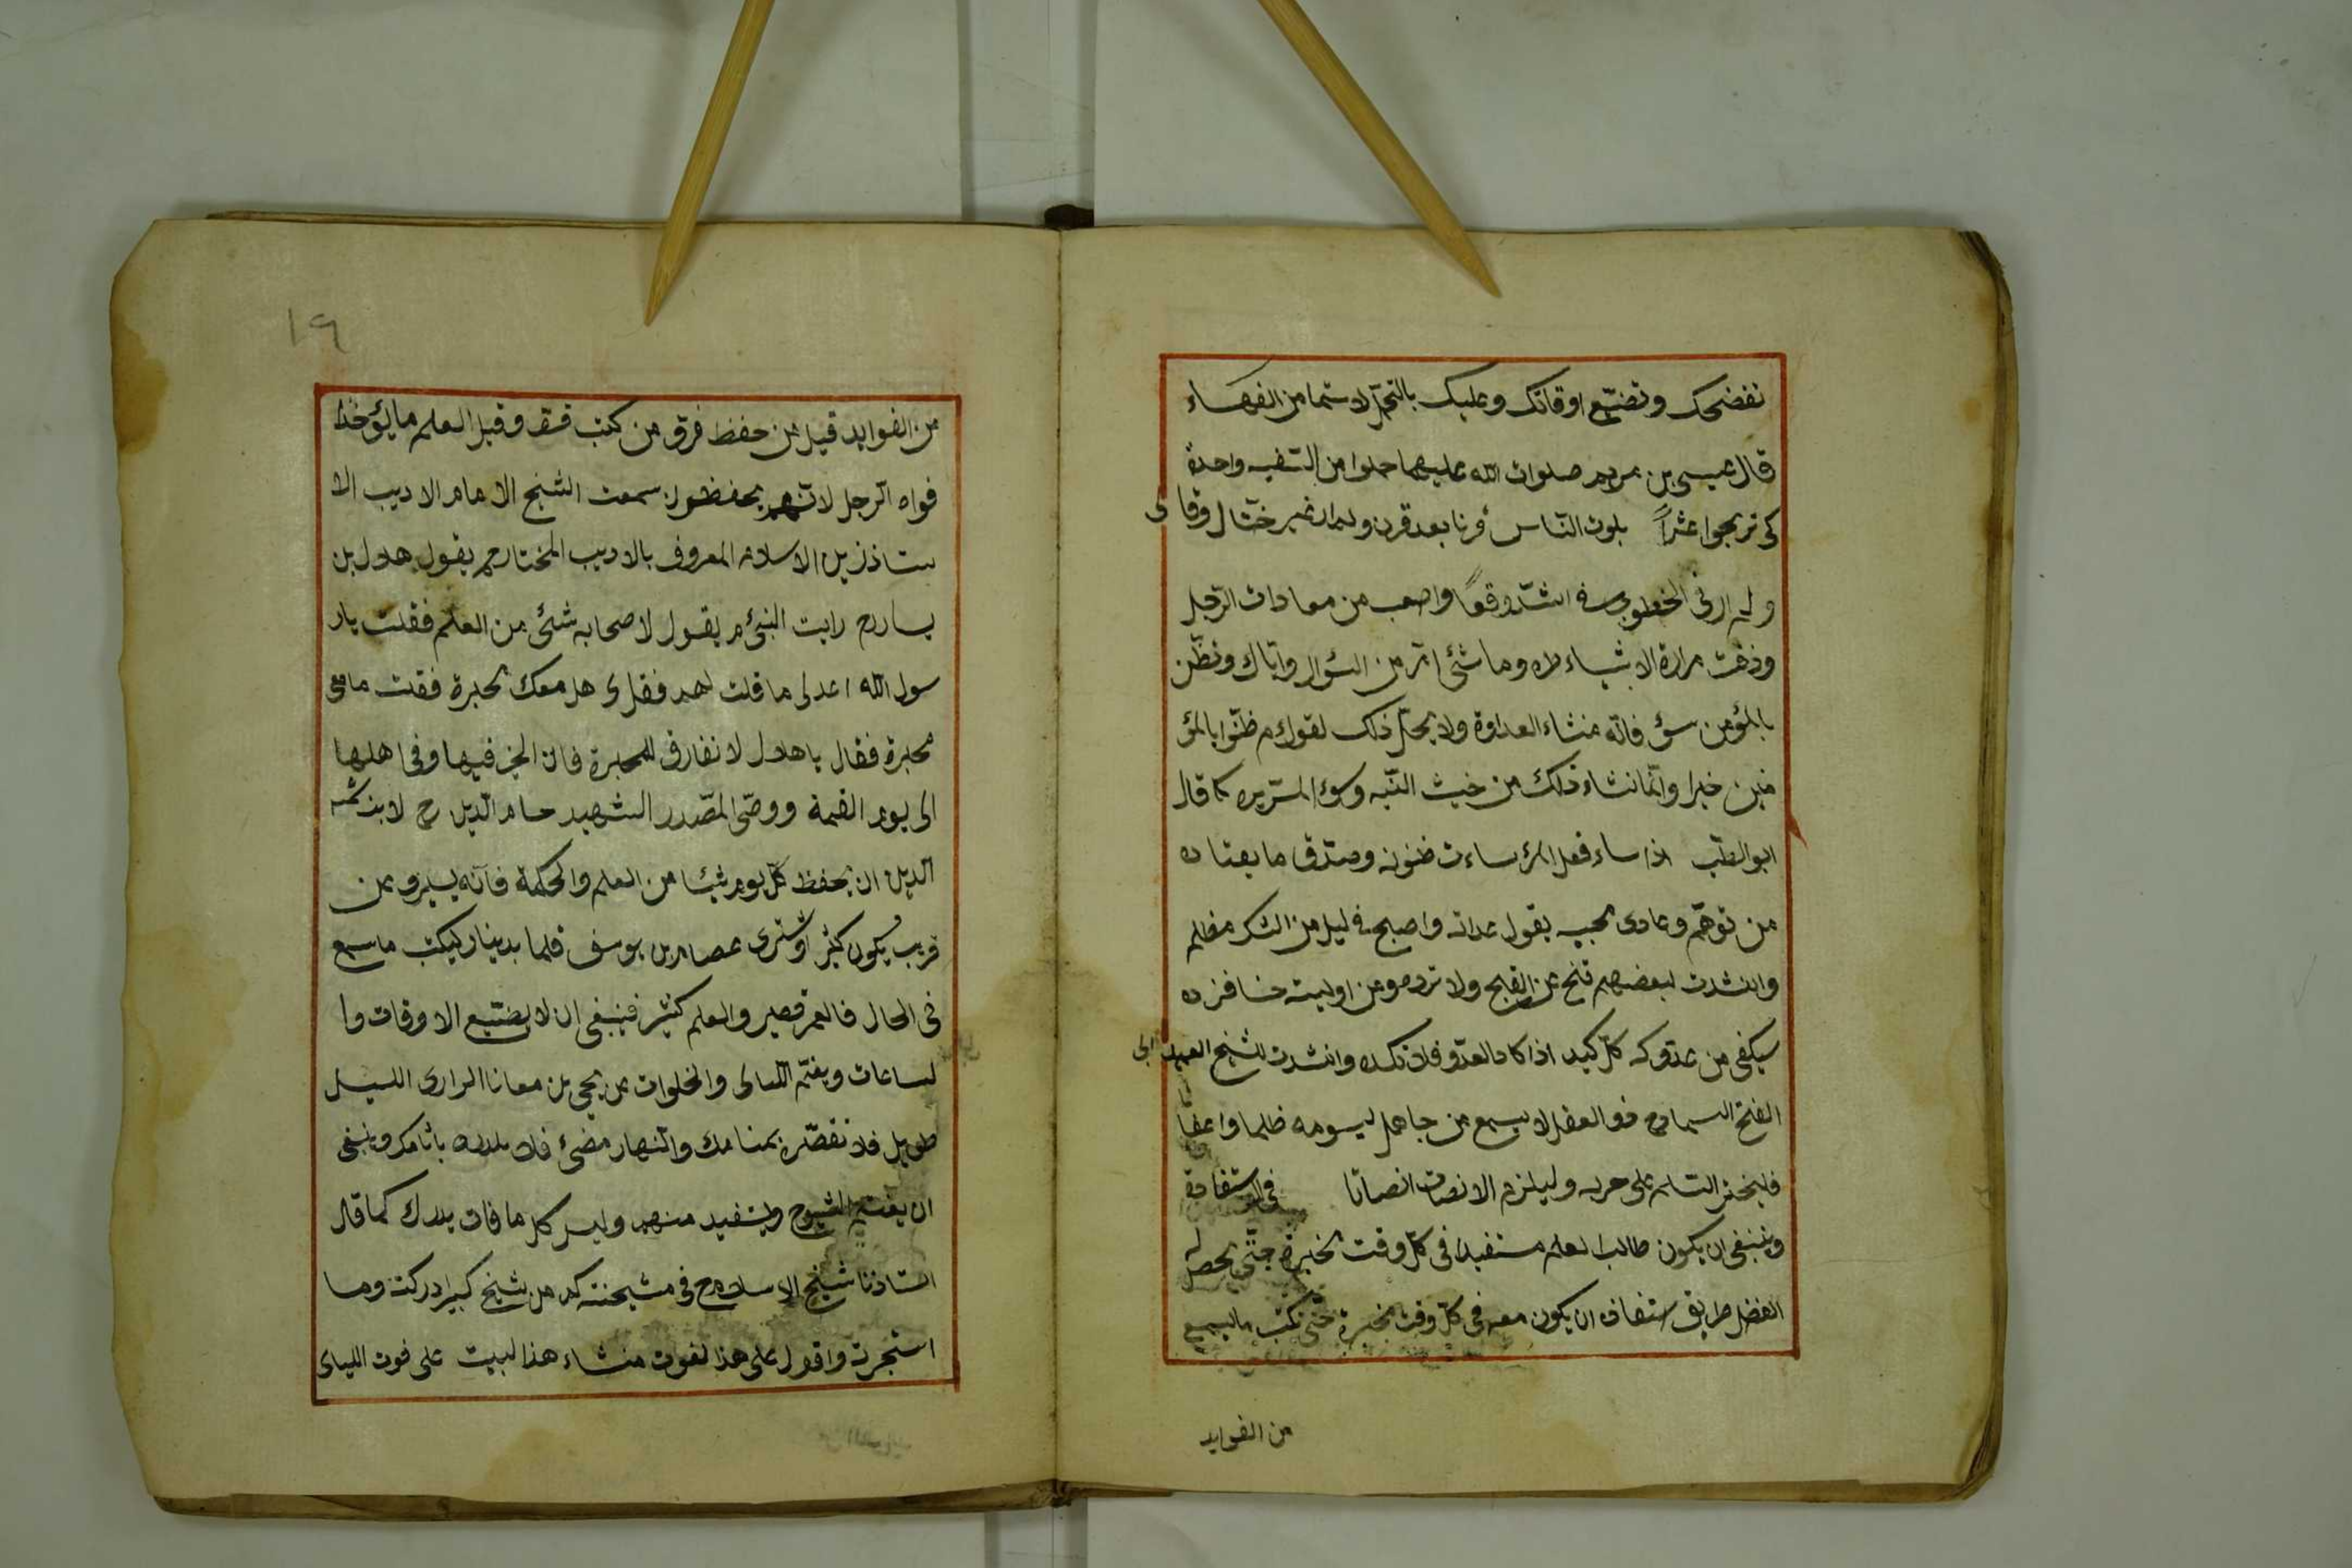 تفضحك وتضيّع اوقاتك وعليك بالتحمّل لا سيّما من الفهاء
قال عيسى بن مريم صلوات الله عليهما حملوا من السّفيه واحدة
كى تربحوا عشراً بلوت النّاس قرنا بعد قرن ولم ار غير ختّال وقالى
ولم ار فى الخطوب اشدّ وقعاً واصعب من معادات الرّجل
وذقت مرارة الاشياء طره وما شئ امرّ من السّؤال وايّاك وتظنّن
بالمؤمن سؤ فانّه منشاء العداوة ولا يحلّ ذلك لقوله م ظنّوا بالمؤ
منين خيرا وانّما نشاء ذلك من خبث النّيه وسوء السّريره كما قال
ابو الطيّب اذا ساء فعل المرء ساءت ظنونه وصدّق ما يعتاده
من توهّم وعادى محبيه بقول عداته واصبح فى ليل من الشك مظلم
وانشدت لبعضهم تنحّ عن القبيح ولا ترده ومن اوليته حسنا فزده
سيكفى من عدوّك كلّ كيد اذا كاد العدّو فلا تكده وانشدت للشيخ العميد ابى
الفتح البستى ذو العقل لا يسمع من جاهل ليسومه ظلما واعفاتا
فليختر السّلم على حربه وليلزم الانصات انصاتا فى الاستفادة
وينبغى ان يكون طالب العلم مستفيدا فى كلّ وقت بخيرة حتّى يحصل له
الفضل طريق استفاده ان يكون معه فى كلّ وقت محبرة حتّى يكتب ما يسمع
من الفوايد
١٩
من الفوايد قيل من حفظ فرق من كتب قرّ وقيل العلم ما يؤخذ
فواه الرّجل لانّهم يحفظون سمعت الشيخ الامام الاديب الا
ستاذ زين الاسلام المعروف بالاديب المختار رحم يقول هلال بن
يسار رم رايت النبىّ م يقول لاصحابه شئ من العلم فقلت يار
سول الله اعد لى ما قلت لهم فقل لى هل معك محبرة فقلت ما معى
محبرة فقال يا هلال لا تفارق المحبرة فان الخير فيها وفى اهلها
الى يوم القيمة ووصّى الصّدر الشهيد حسام الدّين رح لابنه شمس
الدّين ان يحفظ كلّ يوم شيئا من العلم والحكمة فانّه يسير وعن
قريب يكون كثير اوشترى عصام بن يوسف قلما بدينار ليكتب ما سمع
فى الحال فالعمر قصير والعلم كثير فينبغى ان لا يضيّع الاوقات وا
لساعات ويغتنم اللّيالى والخلوات عن يحيى بن معاذ الرارى الليل
طويل فلا تقصّره بمنامك والنّهار مضئ فلا تكدره بآثامك وينبغى
ان يغتنم الشيوخ ويستفيد منهم وليس كل ما فات يدرك كما قال
استاذنا شيخ الاسلام رح فى مشيخته كم من شيخ كبير ادركته وما
استخبرت واقول على هذا لفوت منشاء هذا البيت على فوت الليالى